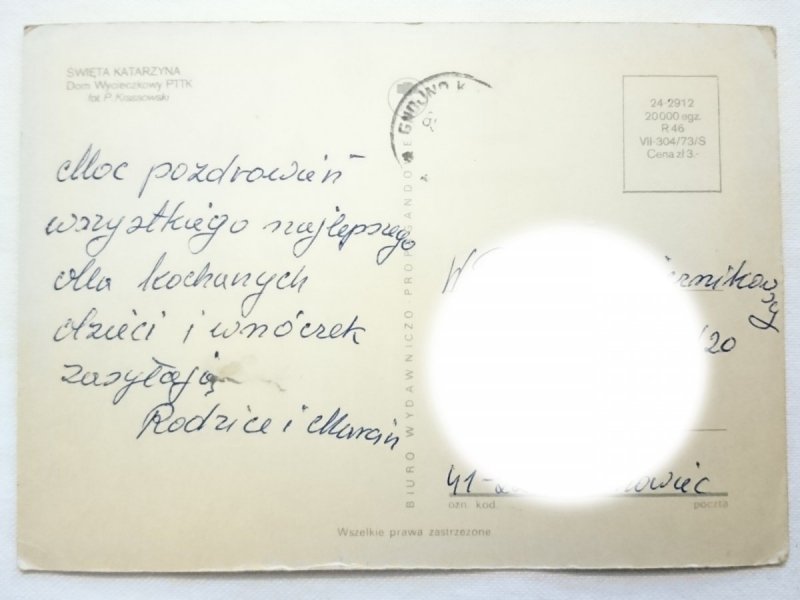 ŚWIĘTA KATARZYNA
Dom Wycieczkowy PTTK
fot. P. Krassowski
24-2912
20 000 egz.
R 46
VII-304/73/S
Cena zł 3.-
Moc pozdrowień
wszystkiego najlepszego
dla kochanych
dzieci i wnóczek
zasyłają
Rodzice i Marcin
BIURO WYDAWNICZO-PROPAGANDOWE
W
/20
41-
ozn. kod.
poczta
Wszelkie prawa zastrzeżone